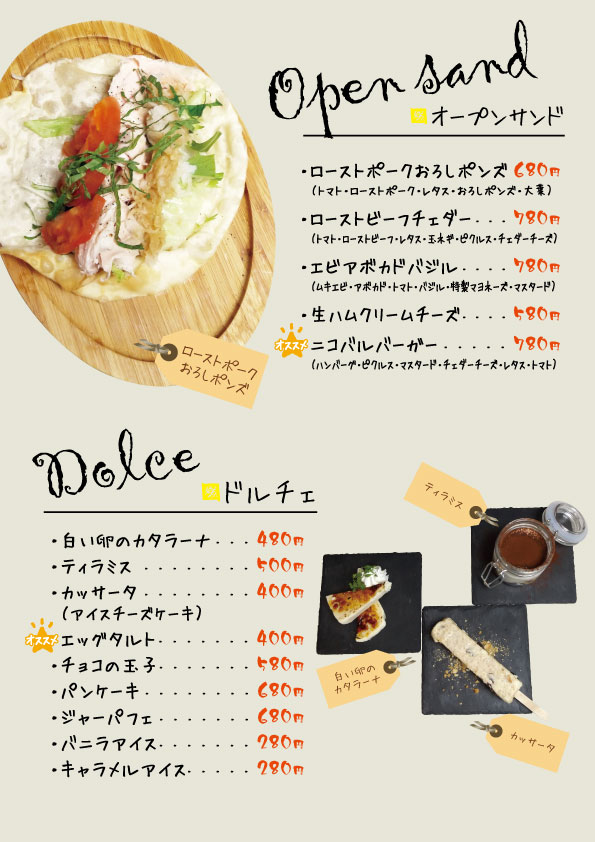 Open sand
オープンサンド
・ローストポークおろしポンズ 680円
(トマト・ローストポーク・レタス・おろしポンズ・大葉)
・ローストビーフチェダー・・・・ 780円
(トマト・ローストビーフ・レタス・玉ネギ・ピクルス・チェダーチーズ)
・エビアボカドバジル・・・・ 780円
(ムキエビ・アボカド・トマト・バジル・特製マヨネーズ・マスタード)
・生ハムクリームチーズ・・・・ 580円
オススメ
ニコバルバーガー・・・・・ 780円
(ハンバーグ・ピクルス・マスタード・チェダーチーズ・レタス・トマト)
ローストポーク
おろしポンズ
Dolce
ドルチェ
・白い卵のカタラーナ・・・ 480円
・ティラミス・・・・・・・ 500円
・カッサータ・・・・・・・ 400円
(アイスチーズケーキ)
オススメ
エッグタルト・・・・・・ 400円
・チョコの玉子・・・・・・ 580円
・パンケーキ・・・・・・・ 680円
・ジャーパフェ・・・・・・ 680円
・バニラアイス・・・・・・ 280円
・キャラメルアイス・・・・・ 280円
ティラミス
白い卵の
カタラーナ
カッサータ